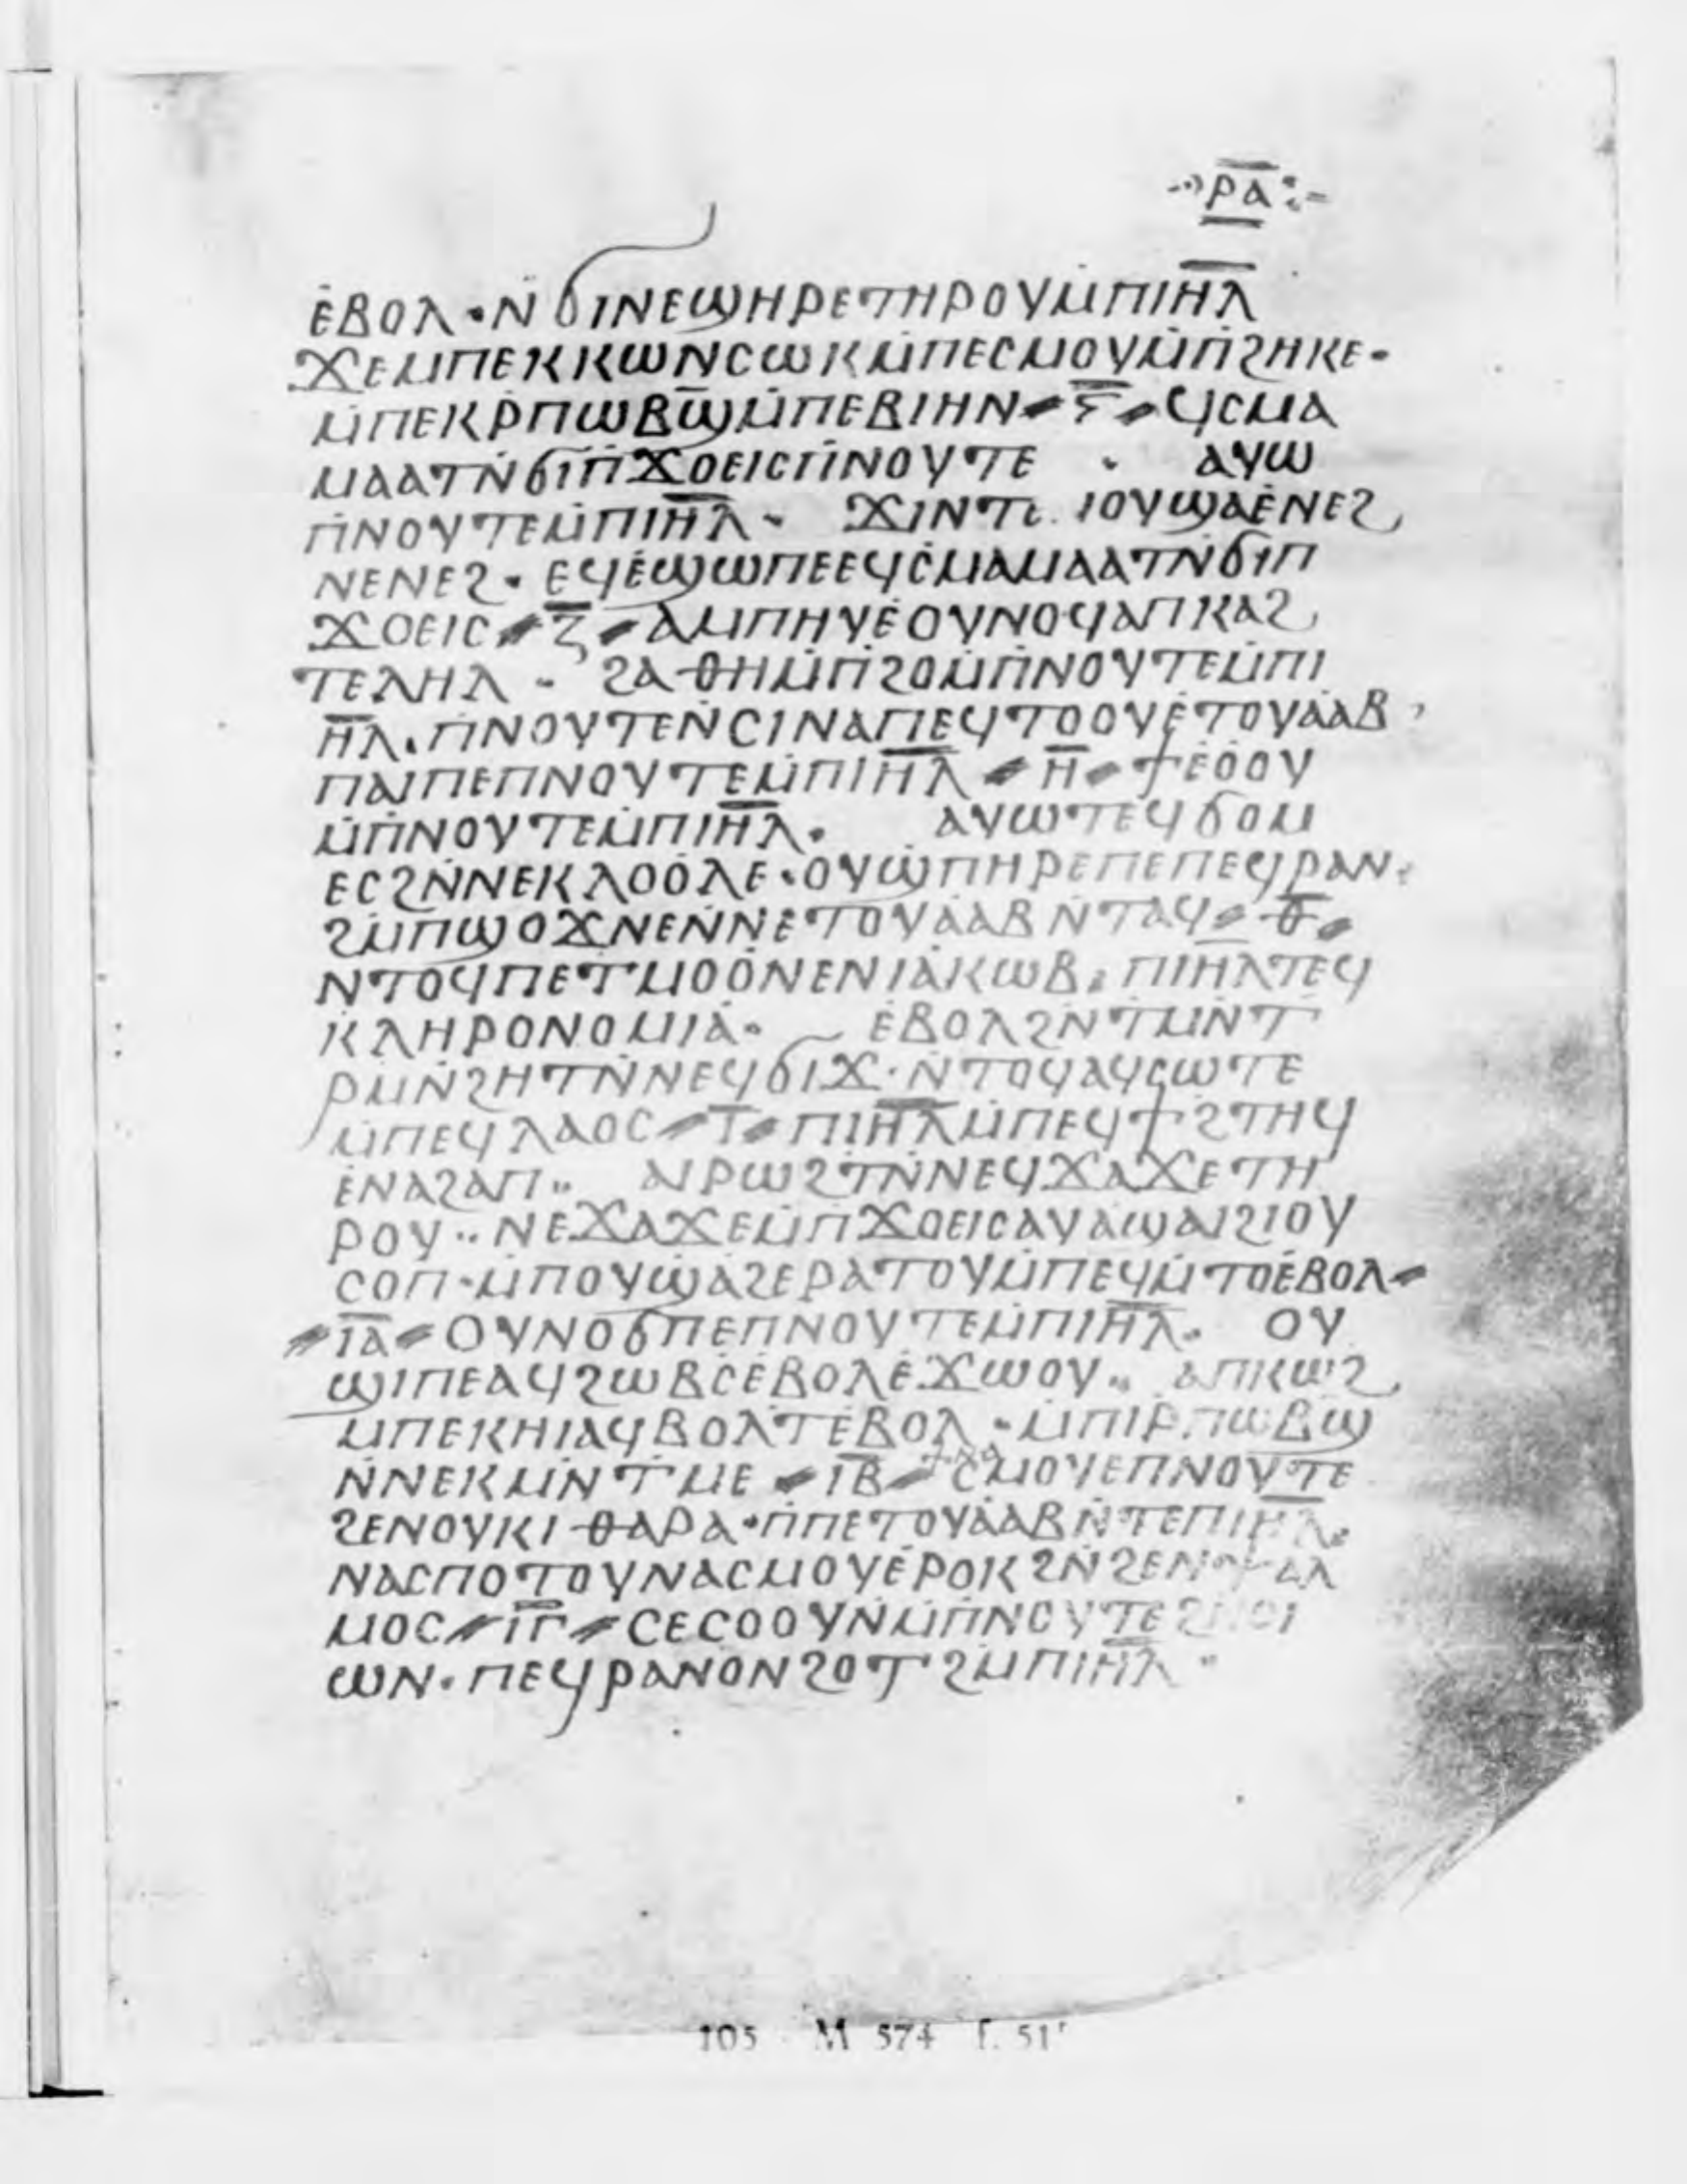 ⲣ̅ⲁ̅
ⲉ̇ⲃⲟⲗ · ⲛ̇ϭⲓⲛⲉϣⲏⲣⲉⲧⲏⲣⲟⲩⲙ̇ⲡⲓⲏ̅ⲗ̅
ϫⲉⲙⲡⲉⲕⲕⲱⲛⲥⲱⲕⲙ̇ⲡⲉⲥⲙⲟⲩⲙ̇ⲡ̇ϩⲏⲕⲉ ·
ⲙ̇ⲡⲉⲕⲣ̇ⲡⲱⲃϣ̅ⲙ̇ⲡⲉⲃⲓⲏⲛ ⸗ ⲋ̅ ⸗ ϥⲥⲙⲁ
ⲙⲁⲁⲧⲛ̇ϭⲓⲡ̇ϫⲟⲉⲓⲥⲡ̇ⲛⲟⲩⲧⲉ · ⲁⲩⲱ
ⲡ̇ⲛⲟⲩⲧⲉⲙ̇ⲡⲓⲏ̅ⲗ̅ · ϫⲓⲛⲧ ⲓⲟⲩϣⲁⲉ̇ⲛⲉϩ
ⲛⲉⲛⲉϩ · ⲉϥⲉ̇ϣⲱⲡⲉⲉϥⲥ̇ⲙⲁⲙⲁⲁⲧⲛ̇ϭⲓⲡ
ϫⲟⲉⲓⲥ ⸗ ⲍ̅ ⸗ ⲁⲙⲡⲏⲩⲉ̇ⲟⲩⲛⲟϥⲁⲡⲕⲁϩ
ⲧⲉⲗⲏⲗ · ϩⲁⲑⲏⲙ̇ⲡ̇ϩⲟⲙ̇ⲡ̇ⲛⲟⲩⲧⲉⲙ̇ⲡⲓ
ⲏ̅ⲗ̅ · ⲡ̇ⲛⲟⲩⲧⲉⲛ̇ⲥⲓⲛⲁⲡⲉϥⲧⲟⲟⲩⲉ̇ⲧⲟⲩⲁ̇ⲁⲃ
ⲡⲁⲓⲡⲉⲡⲛⲟⲩⲧⲉⲙ̇ⲡⲓⲏ̅ⲗ̅ ⸗ ⲏ̅ ⸗ ϯⲉ̇ⲟ̇ⲟⲩ
ⲙ̇ⲡ̇ⲛⲟⲩⲧⲉⲙ̇ⲡⲓⲏ̅ⲗ̅ · ⲁⲩⲱⲧⲉϥϭⲟⲙ
ⲉⲥϩⲛ̇ⲛⲉⲕⲗⲟⲟ̇ⲗⲉ · ⲟⲩϣⲡⲏⲣⲉⲡⲉⲡⲉϥⲣⲁⲛ ·
ϩⲙ̇ⲡ̇ϣⲟϫⲛⲉⲛ̇ⲛⲉⲧⲟⲩⲁ̇ⲁⲃⲛ̇ⲧⲁϥ ⸗ ⲑ̅ ⸗
ⲛⲧⲟϥⲡⲉⲧⲙⲟⲟ̇ⲛⲉⲛⲓⲁ̇ⲕⲱⲃ · ⲡⲓⲏ̅ⲗ̅ⲧⲉϥ
ⲕⲗⲏⲣⲟⲛⲟⲙⲓⲁ̇ · ⲉ̇ⲃⲟⲗϩⲛ̇ⲧⲙⲛ̇ⲧ
ⲣⲙⲛ̇ϩⲏⲧⲛ̇ⲛⲉϥϭⲓϫ · ⲛ̇ⲧⲟϥⲁϥⲥⲱⲧⲉ
ⲙ̇ⲡⲉϥⲗⲁⲟⲥ ⸗ ⲓ̅ ⸗ ⲡⲓⲏ̅ⲗ̅ⲙ̇ⲡⲉϥϯϩⲧⲏϥ
ⲉ̇ⲛⲁϩⲁⲡ ·· ⲁⲓⲣⲱϩⲧⲛ̇ⲛⲉϥϫⲁϫⲉⲧⲏ
ⲣⲟⲩ ·· ⲛⲉϫⲁϫⲉⲙ̇ⲡ̇ϫⲟⲉⲓⲥⲁⲩⲁϣⲁⲓϩⲓⲟⲩ
ⲥⲟⲡ · ⲙ̇ⲡⲟⲩϣⲁ̇ϩⲉⲣⲁⲧⲟⲩⲙ̇ⲡⲉϥⲙ̇ⲧⲟⲉ̇ⲃⲟⲗ ⸗
⸗ ⲓ̅ⲁ̅ ⸗ ⲟⲩⲛⲟϭⲡⲉⲡⲛⲟⲩⲧⲉⲙ̇ⲡⲓⲏ̅ⲗ̅ · ⲟⲩ
ϣⲓⲡⲉⲁϥϩⲱⲃⲥ̇ⲉ̇ⲃⲟⲗⲉ̇ϫⲱⲟⲩ ·· ⲁⲡⲕⲱϩ
ⲙⲡⲉⲕⲏⲓⲁϥⲃⲟⲗⲧⲉ̇ⲃⲟⲗ · ⲙ̇ⲡⲓⲣ̇ⲡⲱⲃϣ
ⲛ̇ⲛⲉⲕⲙⲛ̇ⲧⲙⲉ ⸗ ⲓ̅ⲃ̅ ⸗ ⲥⲙⲟⲩⲉⲡⲛⲟⲩⲧⲉ
ϩⲉⲛⲟⲩⲕⲓⲑⲁⲣⲁ · ⲡ̇ⲡⲉⲧⲟⲩⲁ̇ⲁⲃⲛ̇ⲧⲉⲡⲓⲏ̅ⲗ̅ ·
ⲛⲁⲥⲡⲟⲧⲟⲩⲛⲁⲥⲙⲟⲩⲉ̇ⲣⲟⲕϩⲛ̇ϩⲉⲛ ⲁⲗ
ⲙⲟⲥ ⸗ ⲓ̅ⲅ̅ ⸗ ⲥⲉⲥⲟⲟⲩⲛⲙ̇ⲡ̇ⲛⲟⲩⲧⲉ
ⲱⲛ · ⲡⲉϥⲣⲁⲛⲟⲛϩⲟⲧϩⲙⲡⲓⲏ̅ⲗ̅ ·
105 M 574 f. 51ʳ